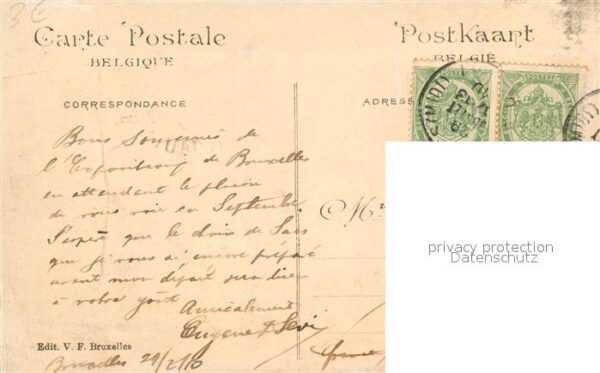 3€
Carte Postale
BELGIQUE
Postkaart
BELGIË
CORRESPONDANCE
ADRESS
Bons Souvenirs de
l'Exposition de Bruxelles
en attendant le plaisir
de vous voir en Septembre.
J'espère que le choix de
que je vous ai encore préparé
avant mon départ sera bien
à votre goût
Amicalement
Eugène D Levi
Edit. V. F. Bruxelles
Bruxelles
privacy protection
Datenschutz